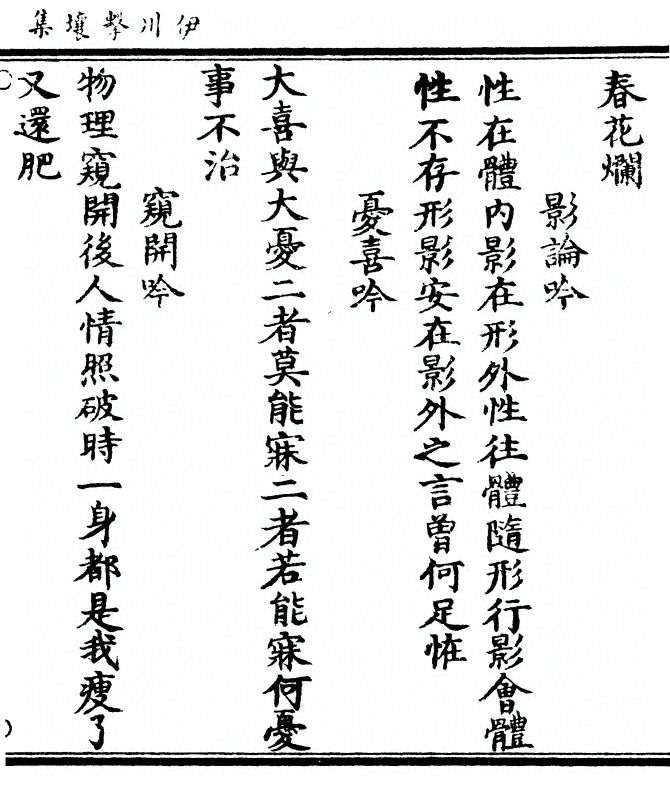 伊川擊壤集
春花爛
影論吟
性在體內影在形外性往體隨形行影會體
性不存形影安在影外之言曾何足恠
憂喜吟
大喜與大憂二者莫能寐二者若能寐何憂
事不治
窺開吟
物理窺開後人情照破時一身都是我瘦了
又還肥